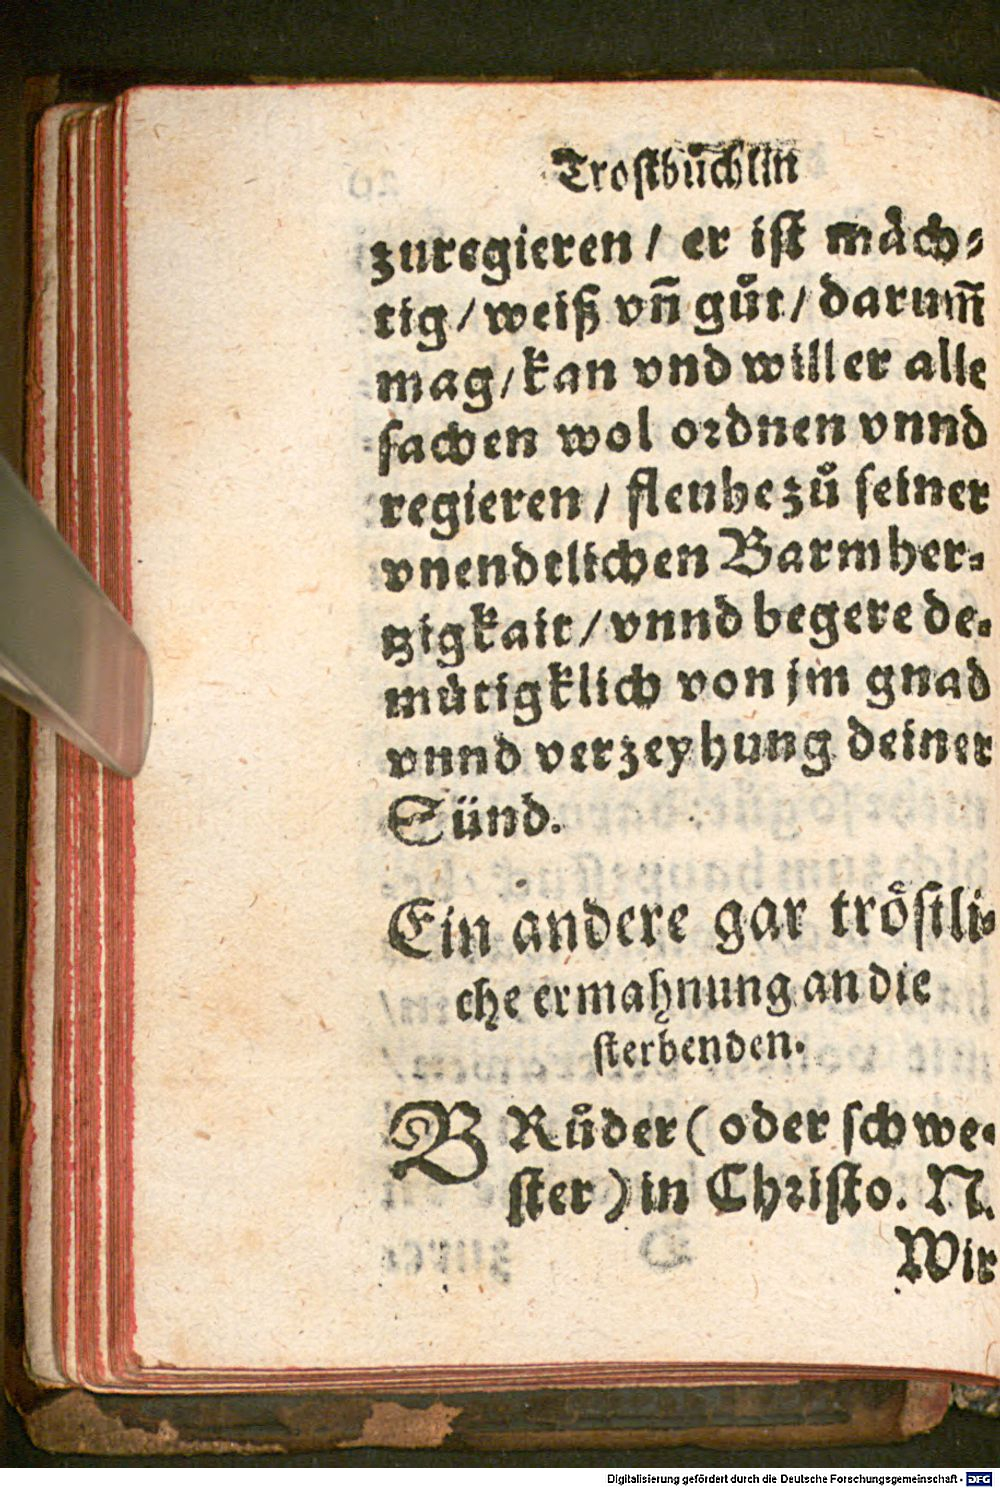 Trostbuͤchlin
zuregieren / er ist maͤch⸗
tig / weiß vn̄ guͦt / darum̄
mag / kan vnd will er alle
sachen wol ordnen vnnd
regieren / flenhe zuͦ seiner
vnendtlichen Barmher⸗
tzigkait / vnnd begere de⸗
muͤtigklich von jm gnad
vnnd verzeyhung deiner
Sünd.
Ein andere gar troͤstli⸗
che ermahnung an die
sterbenden.
BRuͦder ( oder schwe⸗
ster ) in Christo. N.
Wir
Digitalisierung gefördert durch die Deutsche Forschungsgemeinschaft - DFG